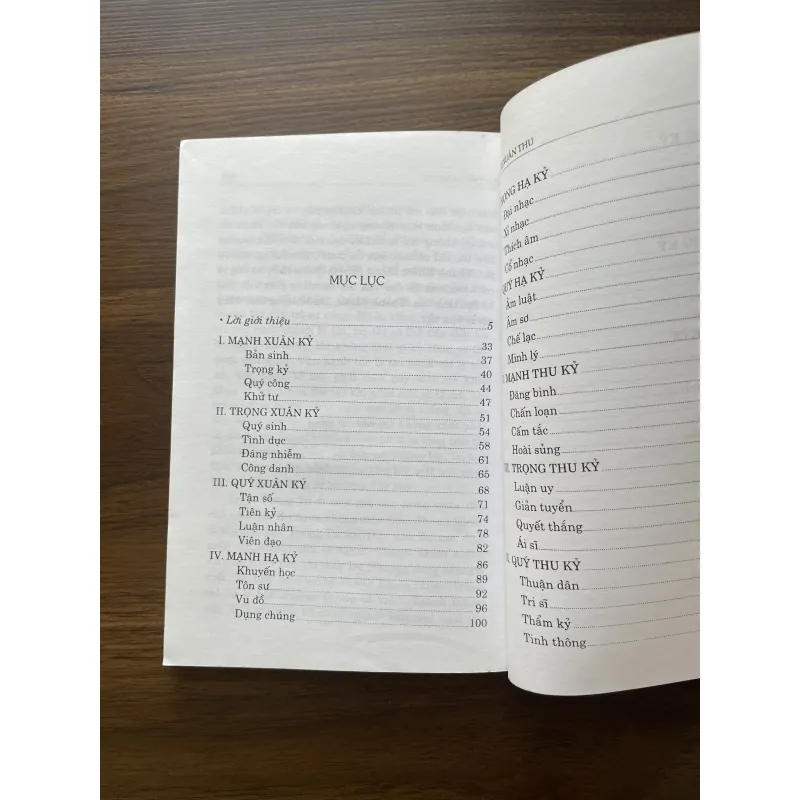 MỤC LỤC
• Lời giới thiệu 5
I. MẠNH XUÂN KỶ 33
Bản sinh 37
Trọng kỷ 40
Quý công 44
Khử tư 47
II. TRỌNG XUÂN KỶ 51
Quý sinh 54
Tình dục 58
Đáng nhiễm 61
Công danh 65
III. QUÝ XUÂN KỶ 68
Tận số 71
Tiên kỷ 74
Luận nhân 78
Viên đạo 82
IV. MẠNH HẠ KỶ 86
Khuyến học 89
Tôn sư 92
Vu đồ 96
Dụng chúng 100
XUÂN THU
TRỌNG HẠ KỶ
Đại nhạc
Xỉ nhạc
Thích âm
Cổ nhạc
QUÝ HẠ KỶ
Âm luật
Âm sơ
Chế lạc
Minh lý
MẠNH THU KỶ
Đãng binh
Chấn loạn
Cấm tắc
Hoài sủng
TRỌNG THU KỶ
Luận uy
Giản tuyển
Quyết thắng
Ái sĩ
QUÝ THU KỶ
Thuận dân
Tri sĩ
Thẩm kỷ
Tinh thông